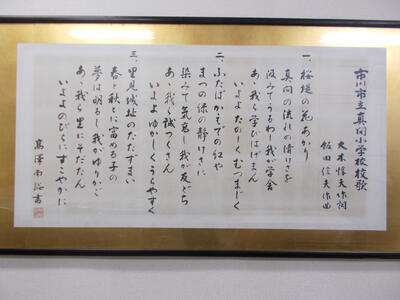 市川市立真間小学校校歌
大木惇夫作詞
飯田信夫作曲
一、桜堤の花あかり
真間の流れの清けさを
汲みてうるわし我が学舎
あゝ我ら学びはげまん
いよよたのしくむつまじく
二、ふたばかえでの紅や
まつの緑の静けさに
染みて気高し我が友どち
あゝ我ら誠つくさん
いよよゆかしくうらやすく
三、里見城址のたたずまい
春と秋とに富める子の
夢は明るし我がゆりかご
あゝ我ら里にそだたん
いよよのびらにすこやかに
書